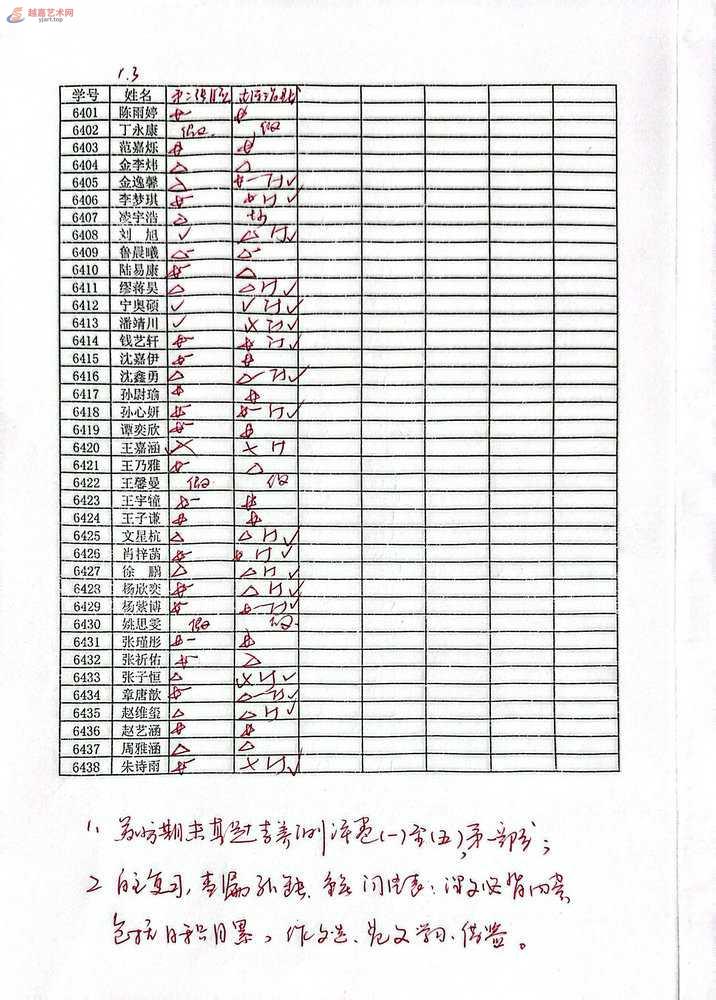 越嘉艺术网
yjart.top
1.3
学号 姓名
6401 陈雨婷
6402 丁永康 假 假
6403 范嘉烁
6404 金李炜 △ △
6405 金逸馨 △ 订 ✓
6406 李梦琪 订 ✓
6407 凌宇浩 △
6408 刘旭 ✓ △ 订 ✓
6409 鲁晨曦 △- △-
6410 陆易康 △
6411 缪蒋昊 △ △ 订 ✓
6412 宁奥硕 ✓ ✓ 订 ✓
6413 潘靖川 ✓ × 订 ✓
6414 钱艺轩 订 ✓
6415 沈嘉伊
6416 沈鑫勇 △ △- 订 ✓
6417 孙尉瑜
6418 孙心妍 订 ✓
6419 谭奕欣
6420 王嘉涵 × × 订
6421 王乃雅 △
6422 王馨曼 假 假
6423 王宇犝
6424 王子谦
6425 文星杭 △ △ 订 ✓
6426 肖梓菡 订 ✓
6427 徐鹏 △ △ 订 ✓
6428 杨欣奕 △ 订 ✓
6429 杨紫博 订 ✓
6430 姚思雯 假 假
6431 张瑾彤
6432 张祈佑 △
6433 张子恒 △ × 订 ✓
6434 章唐歆 △- 订 ✓
6435 赵维玺 △ △ 订 ✓
6436 赵艺涵
6437 周雅涵 △ △
6438 朱诗雨 × 订 ✓
1、期末真题卷(一)至(五),第一部分;
2 自主复习,查漏补缺、课文必背内容
包括日积月累,作文选、范文学习、借鉴。